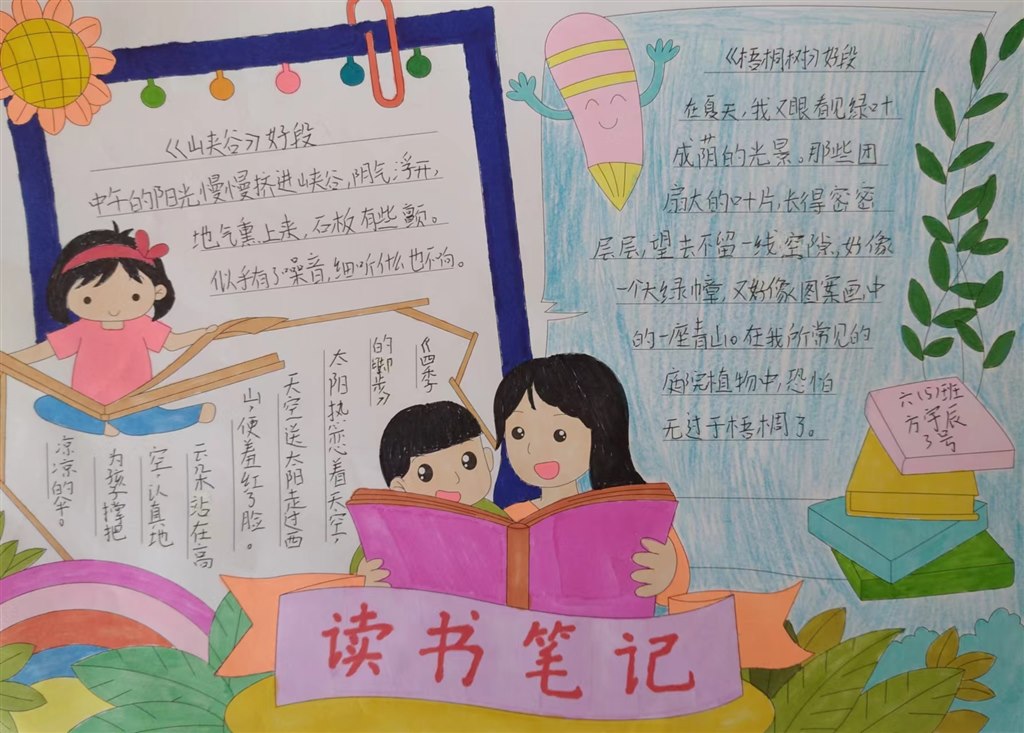 《山夹谷》好段
中午的阳光慢慢挤进峡谷,阴气浮开,
地气熏上来,石板有些颤。
似乎有了噪音,细听什么也不响。
《四季
的脚步》
太阳热恋着天空,
天空送太阳走过西
山,便羞红了脸。
云朵站在高
空,认真地
为孩子撑把
凉凉的伞。
《梧桐树》好段
在夏天,我又眼看见绿叶
成荫的光景。那些团
扇大的叶片,长得密密
层层,望去不留一线空隙,好像
一个大绿幛,又好像图案画中
的一座青山。在我所常见的
庭院植物中,恐怕
无过于梧桐了。
六(5)班
方宇辰
3号
读书笔记